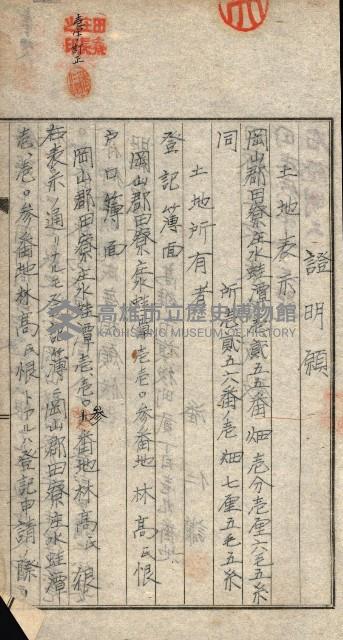 證明願
土地表示
岡山郡田寮庄水蛙潭貳五五番 畑 壱分壱厘六毛五糸
同 所壱貳五六番壱 畑七厘五毛五糸
土地所有者
登記簿面
岡山郡田寮庄水蛙潭壱壱〇参番地 林高氏恨
戸口簿面
岡山郡田寮庄水蛙潭壱壱〇参番地林高氏 銀
右表示ノ通リ登記簿岡山郡田寮庄水蛙潭
壱、壱〇参番地林高氏恨トアルハ登記申請ノ際
壱字訂正
高雄市立歷史博物館
KAOHSIUNG MUSEUM OF HISTORY